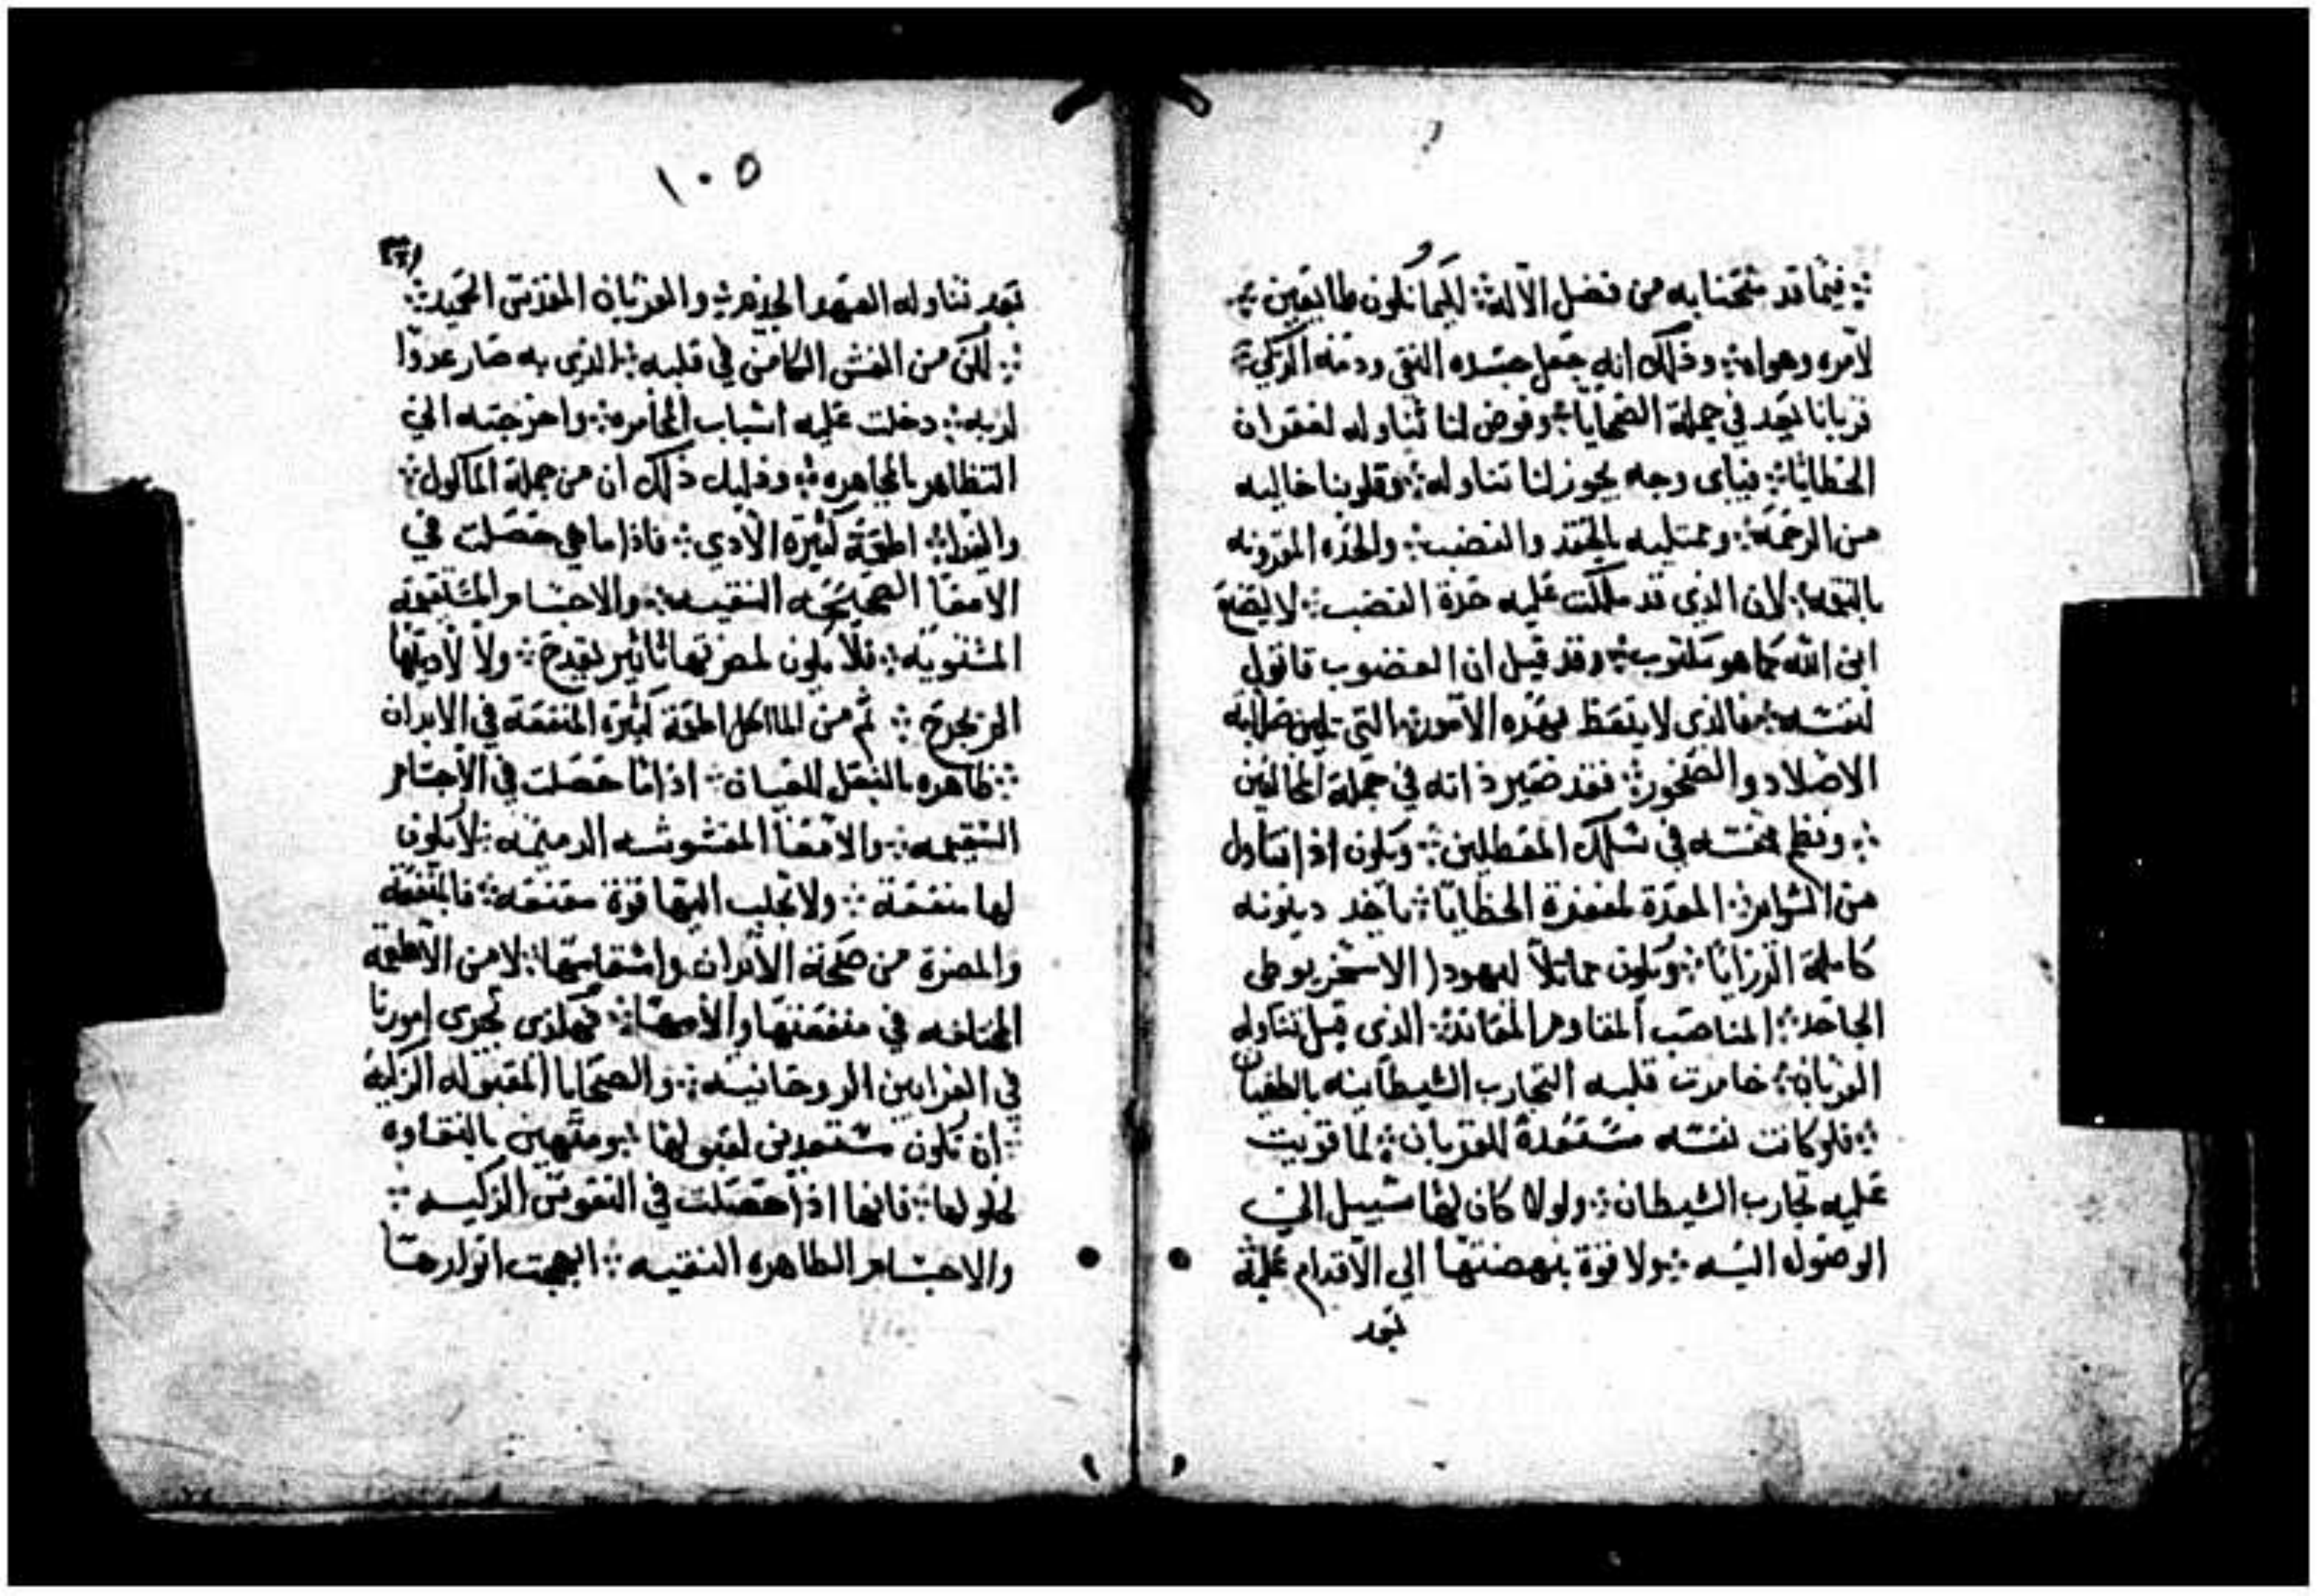 فيما قد منحنا به من فضل الاله ليكما نكون طايعين
لامره وهواه وذلك انه جعل جسده النقي ودمه الزكي
قربانا يعد في جملة الضحايا وفوض لنا تناوله لغفران
الخطايا فباى وجه يجوز لنا تناوله وقلوبنا خاليه
من الرحمة وممتليه بالحقد والغضب والحده المقرونه
لان الذى قد ملكت عليه حدة الغضب لا يضع
ابن الله كما هو مكتوب وقد قيل ان الغضوب قاتول
لنفسه فالذى لا يتعظ بهذه الامور التي تلين صلابة
الاصلاد والصخور فقد صير ذاته في جملة المخالفين
ونظم نفسه في سلك المفطلين ويكون اذا تناول
من السراير المعدة لمغفرة الخطايا ياخد دينونه
كاملة الرزايا ويكون مماثلا ليهودا الاسخريوطى
الجاحد المناصب المقاوم المعاند الذى قبل تناوله
القربان خامرت قلبه التجارب الشيطانيه بالطغيان
فلو كانت نفسه مستعدة للقربان لما قويت
عليه تجارب الشيطان ولولا كان لها سبيل الى
الوصول اليه ولا قوة بنهضتها الي الاقدام عليه
بعد
١٠٥
بعد تناوله العهد الجديد والقربان المقدس المجيد
لكن من الغش الكامن في قلبه الذى به صار عدوا
لربه دخلت عليه اسباب المخامره واخرجته الى
التظاهر بالمجاهره ودليل ذلك ان من جملة الماكول
والغدا اطعمة كثيرة الادى فاذا ما هي حصلت في
الامعا الصحيحه النقيه والاجسام المستقيمة
المستويه فلا يكون لمضرتها تاثير يقدح ولا لاديتها
اثر يجرح ثم من الماكل اطعمة كثيرة المنفعة في الابدان
ظاهره بالفعل للعيان اذا ما حصلت في الاجسام
السقيمه والامعا المغشوشه الدميمه لا يكون
لها منفعة ولا تجلب اليها قوة مقنعه فالمنفعة
والمضرة من صحة الابدان واسقامها لا من الاطعمه
المختلفه في منفعتها والامها فهكذى تجرى امورنا
في القرابين الروحانيه والضحايا المقبوله الزكيه
ان نكون مستعدين لقبولها بالنقاوه
لحلولها فانها اذا حصلت في النفوس الزكيه
والاجسام الطاهره النقيه ابهجت انوارها